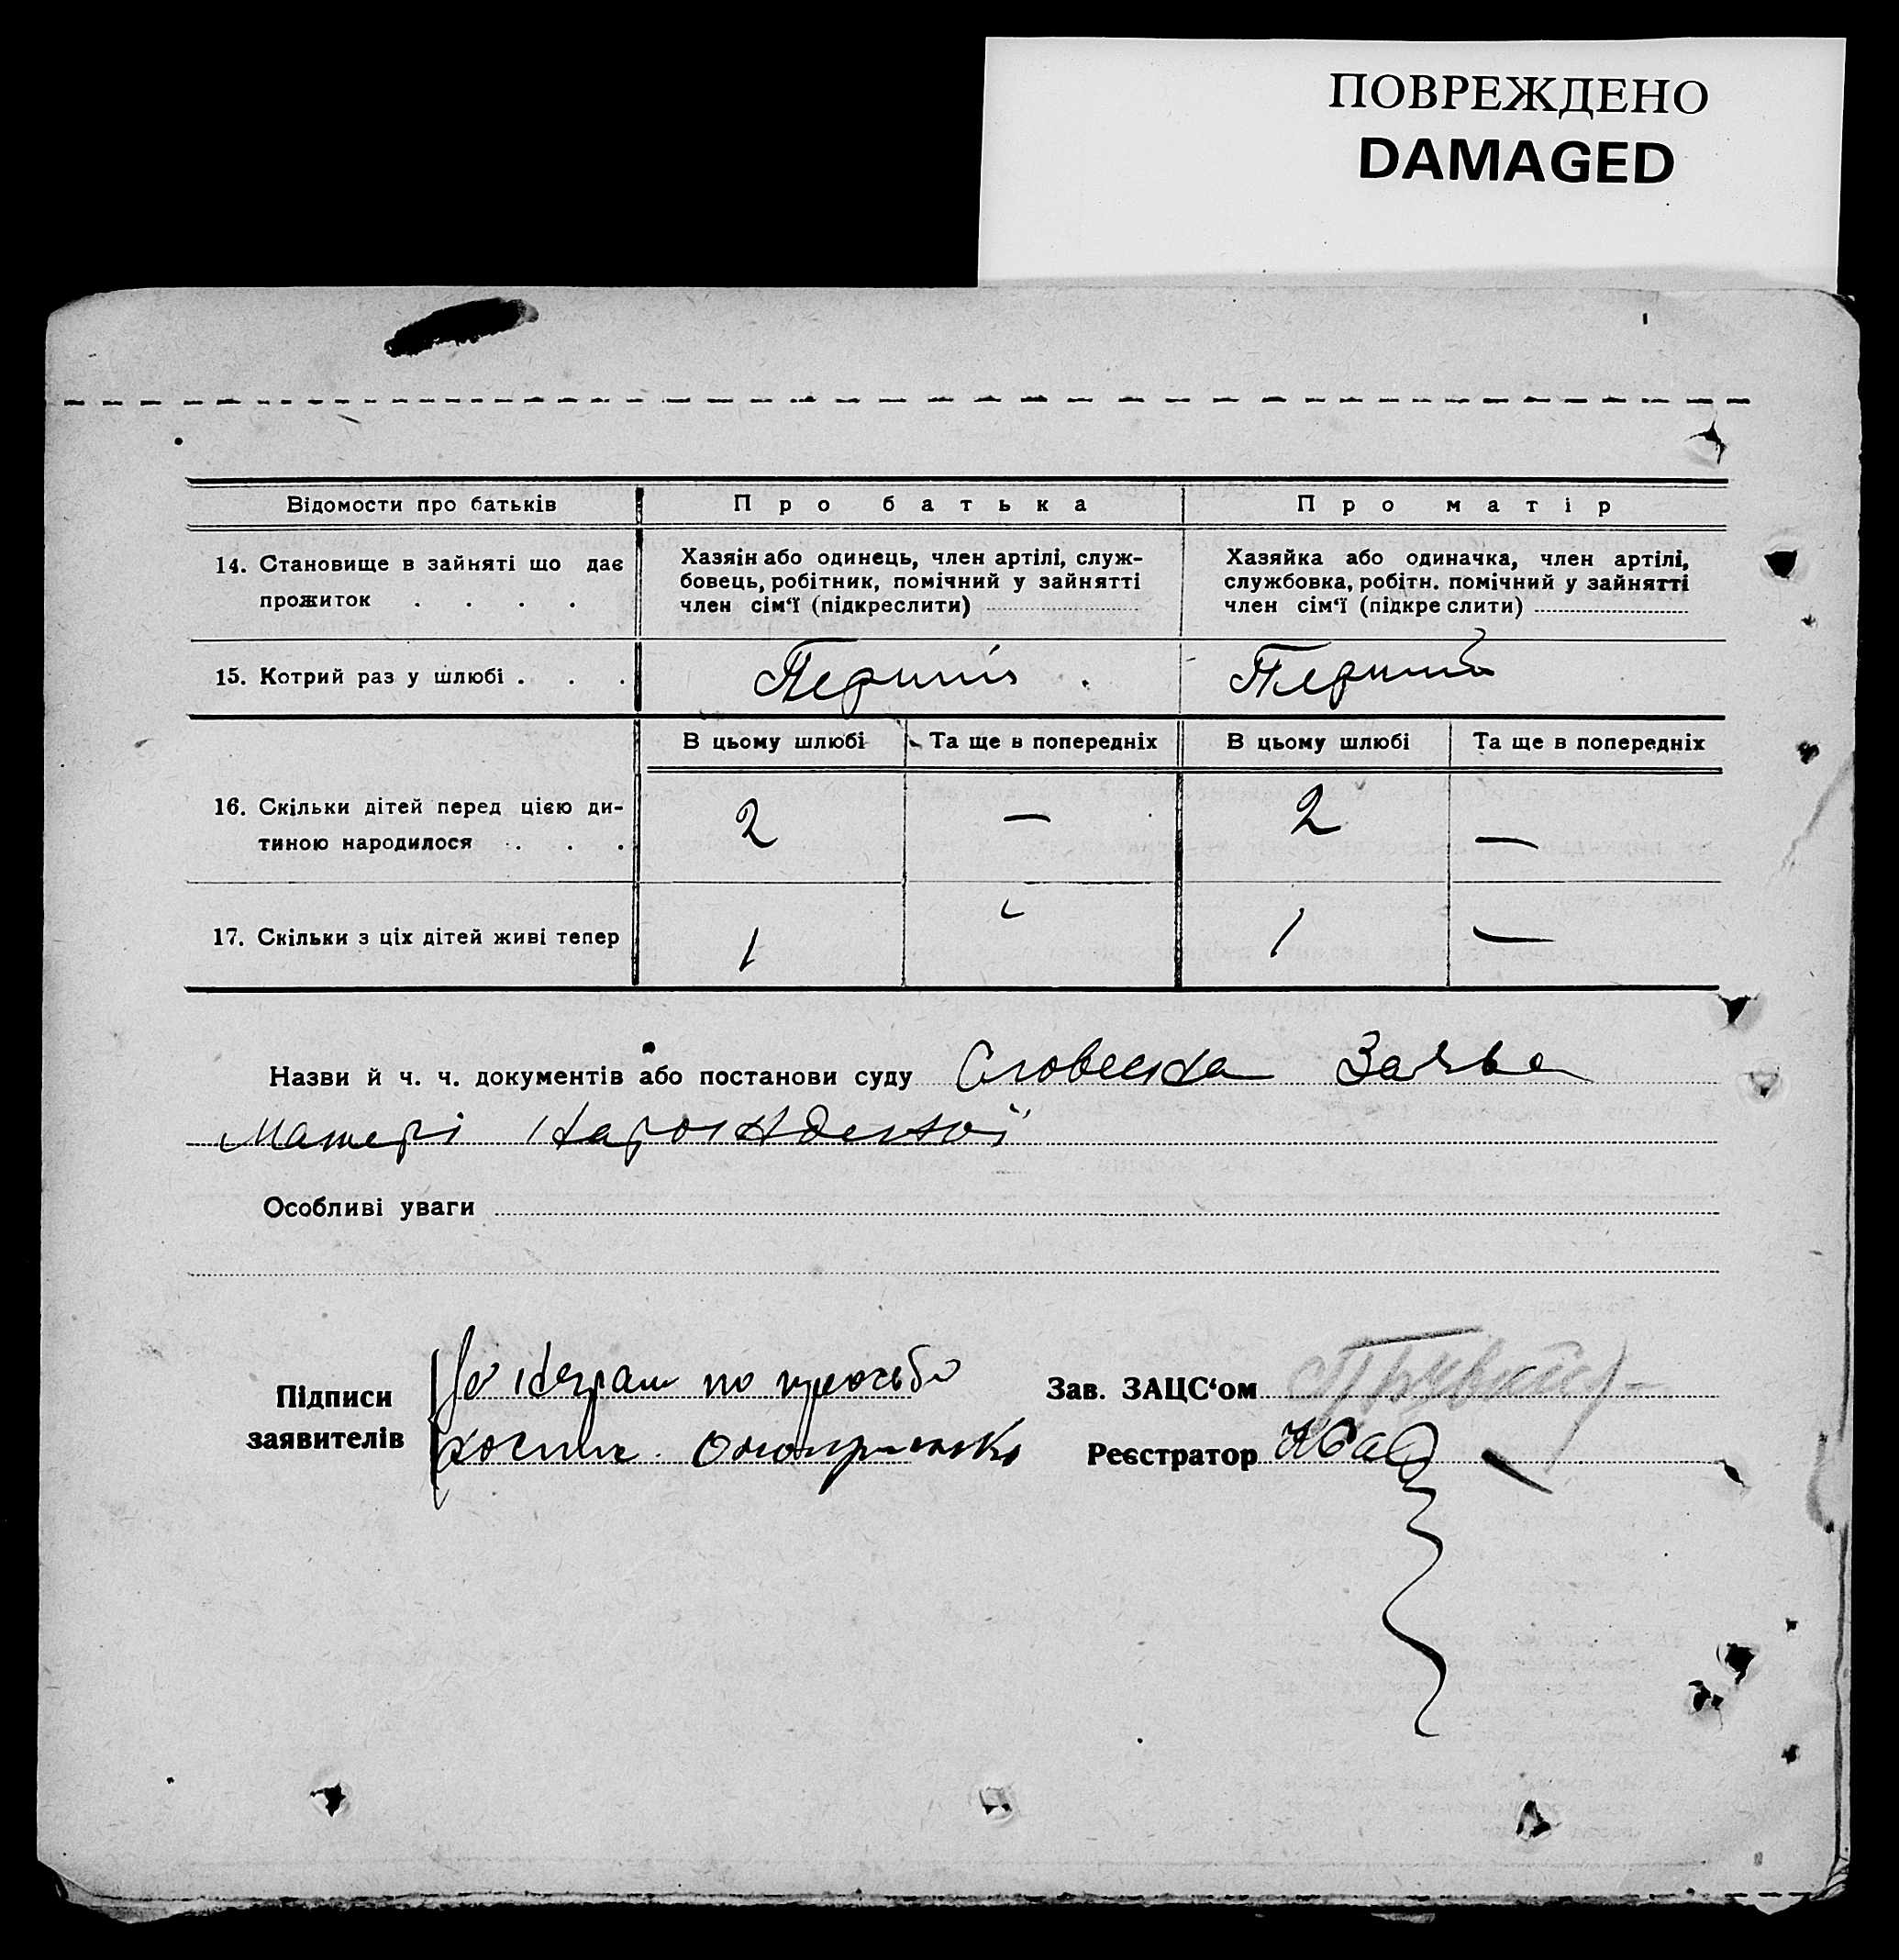 ПОВРЕЖДЕНО
DAMAGED
Відомости про батьків
Про батька
Про матір
14. Становище в зайняті що дає
прожиток . . . .
Хазяїн або одинець, член артілі, служ-
бовець, робітник, помічний у зайнятті
член сім‘ї (підкреслити)
Хазяйка або одиначка, член артілі,
службовка, робітн. помічний у зайнятті
член сім‘ї (підкреслити)
15. Котрий раз у шлюбі . . .
Перший
Перший
В цьому шлюбі
Та ще в попередніх
В цьому шлюбі
Та ще в попередніх
16. Скільки дітей перед цією ди-
тиною народилося . . .
2
—
2
—
17. Скільки з ціх дітей живі тепер
1
1
—
Назви й ч. ч. документів або постанови суду Словесна Заява
Матері Нарожденої
Особливі уваги
Підписи
заявителів
по
Зав. ЗАЦС‘ом
Реєстратор